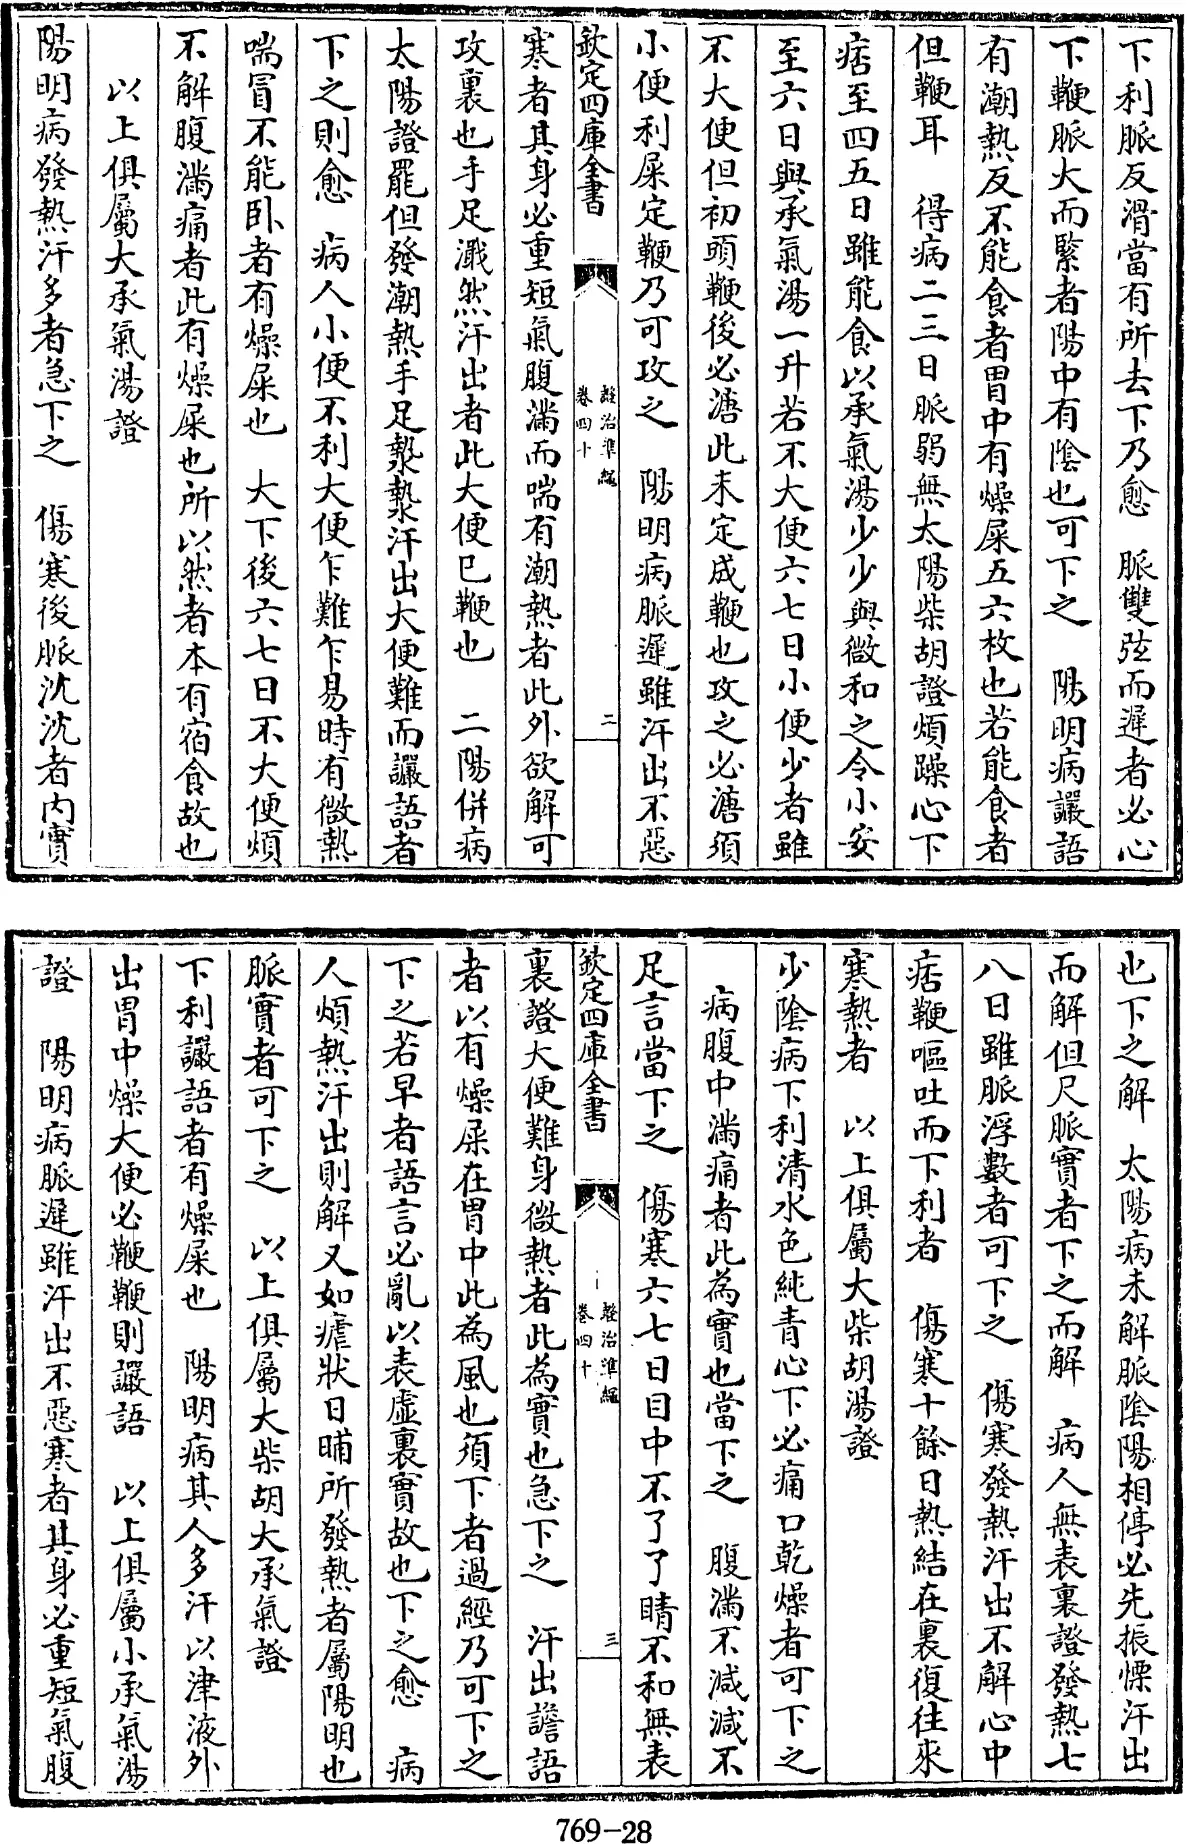 下利脈反滑當有所去下乃愈　脈雙弦而遲者必心
下鞕脈大而緊者陽中有隂也可下之　陽明病讝語
有潮熱反不能食者胃中有燥屎五六枚也若能食者
但鞕耳　得病二三日脈弱無太陽柴胡證煩躁心下
痞至四五日雖能食以承氣湯少少與微和之令小安
至六日與承氣湯一升若不大便六七日小便少者雖
不大便但初頭鞕後必溏此未定成鞕也攻之必溏須
小便利屎定鞕乃可攻之　陽明病脈遲雖汗出不惡
欽定四庫全書　證治準繩　卷四十　二
寒者其身必重短氣腹滿而喘有潮熱者此外欲解可
攻裏也手足濈然汗出者此大便已鞕也　二陽併病
太陽證罷但發潮熱手足漐漐汗出大便難而讝語者
下之則愈　病人小便不利大便乍難乍易時有微熱
喘冒不能卧者有燥屎也　大下後六七日不大便煩
不解腹滿痛者此有燥屎也所以然者本有宿食故也
以上俱屬大承氣湯證
陽明病發熱汗多者急下之　傷寒後脈沈沈者内實
也下之解　太陽病未解脈隂陽相停必先振慄汗出
而解但尺脈實者下之而解　病人無表裏證發熱七
八日雖脈浮數者可下之　傷寒發熱汗出不解心中
痞鞕嘔吐而下利者　傷寒十餘日熱結在裏復往來
寒熱者　以上俱屬大柴胡湯證
少隂病下利清水色純青心下必痛口乾燥者可下之
病腹中滿痛者此為實也當下之　腹滿不減減不
足言當下之　傷寒六七日目中不了了睛不和無表
欽定四庫全書　證治準繩　卷四十　三
裏證大便難身微熱者此為實也急下之　汗出譫語
者以有燥屎在胃中此為風也須下者過經乃可下之
下之若早者語言必亂以表虛裏實故也下之愈　病
人煩熱汗出則解又如瘧狀日晡所發熱者屬陽明也
脈實者可下之　以上俱屬大柴胡大承氣證
下利讝語者有燥屎也　陽明病其人多汗以津液外
出胃中燥大便必鞕鞕則讝語　以上俱屬小承氣湯
證　陽明病脈遲雖汗出不惡寒者其身必重短氣腹
769-28